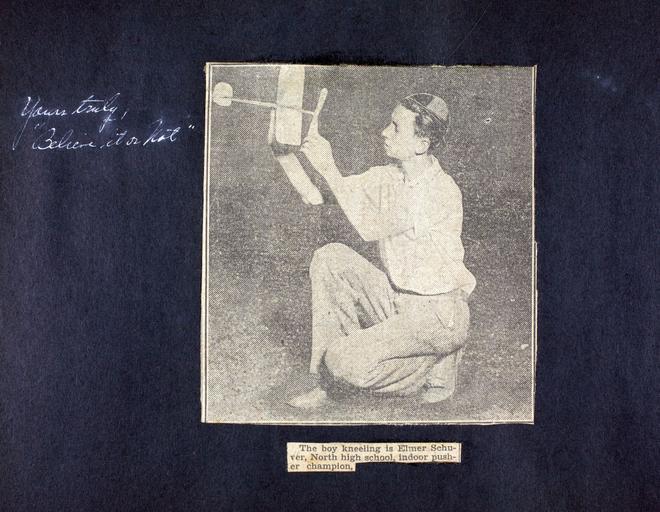 Yours truly,
"Believe it or Not"
The boy kneeling is Elmer Schu-
ver, North high school, indoor push-
er champion,